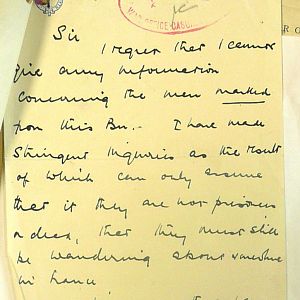 WAR OFFICE CASU
Sir
I regret that I cannot
give any information
concerning the men marked
from this Bn. - I have made
stringent inquiries as the result
of which can only assume
that if they are not prisoners
or dead, that they must still
be wandering about somewhere
in France